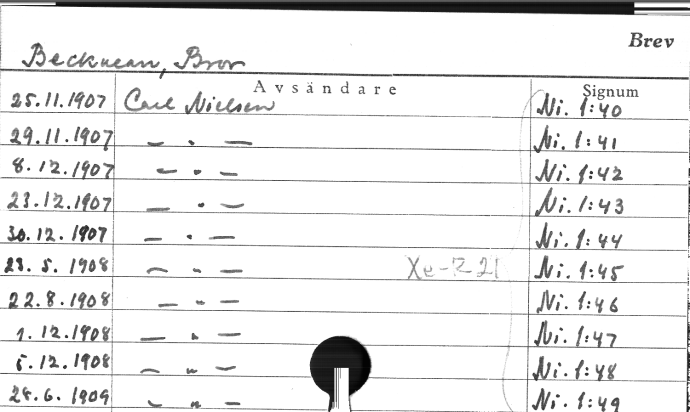 Brev
Beckman, Bror
Avsändare Signum
25.11.1907 Carl Nielsen Ni. 1:40
29.11.1907 — " — Ni. 1:41
8.12.1907 — " — Ni. 1:42
23.12.1907 — " — Ni. 1:43
30.12.1907 — " — Ni. 1:44
23.5.1908 — " — Xe-R 21 Ni. 1:45
22.8.1908 — " — Ni. 1:46
1.12.1908 — " — Ni. 1:47
5.12.1908 — " — Ni. 1:48
24.6.1909 — " — Ni. 1:49